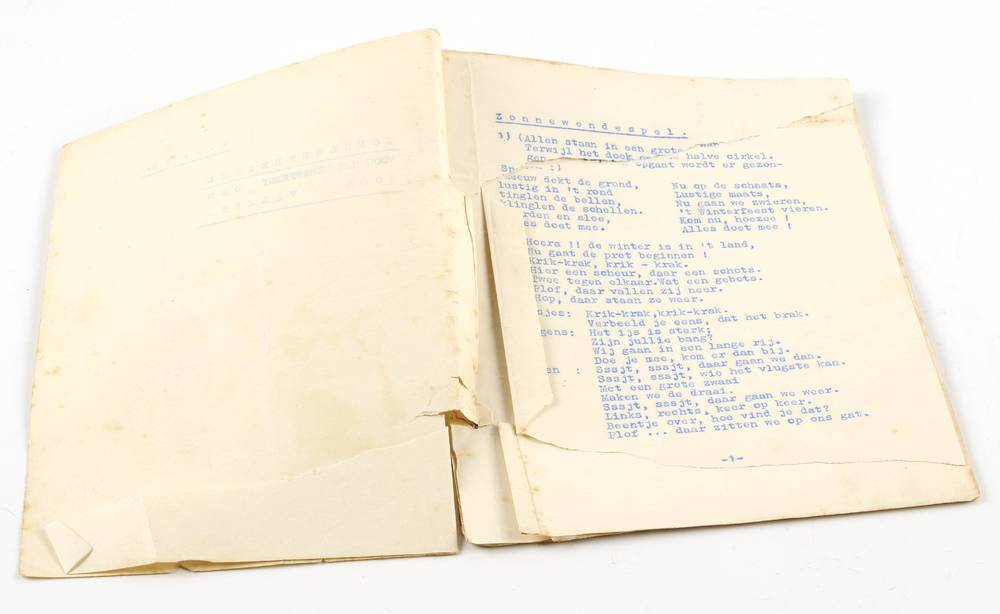 Zonnewendespel.
1) (Allen staan in een grote
Terwijl het doek halve cirkel.
opgaat wordt er gezon-
:)
eeuw dekt de grond,
lustig in 't rond
tinglen de bellen,
klinglen de schellen.
rden en slee,
es doet mee.
Nu op de schaats,
Lustige maats,
Nu gaan we zwieren,
't Winterfeest vieren.
Kom nu, hoezee !
Alles doet mee !
Hoera !! de winter is in 't land,
Nu gaat de pret beginnen !
Krik-krak, krik - krak.
Hier een scheur, daar een schots.
Twee tegen elkaar.Wat een gebots.
Plof, daar vallen zij neer.
Hop, daar staan ze weer.
sjes: Krik-krak,krik-krak.
Verbeeld je eens, dat het brak.
gens: Het ijs is sterk;
Zijn jullie bang?
Wij gaan in een lange rij.
Doe je mee, kom er dan bij.
en : Sssjt, sssjt, daar gaan we dan.
Sssjt, sssjt, wie het vlugste kan.
Met een grote zwaai
Maken we de draai.
Sssjt, sssjt, daar gaan we weer.
Links, rechts, keer op keer.
Beentje over, hoe vind je dat?
Plof ... daar zitten we op ons gat.
-1-